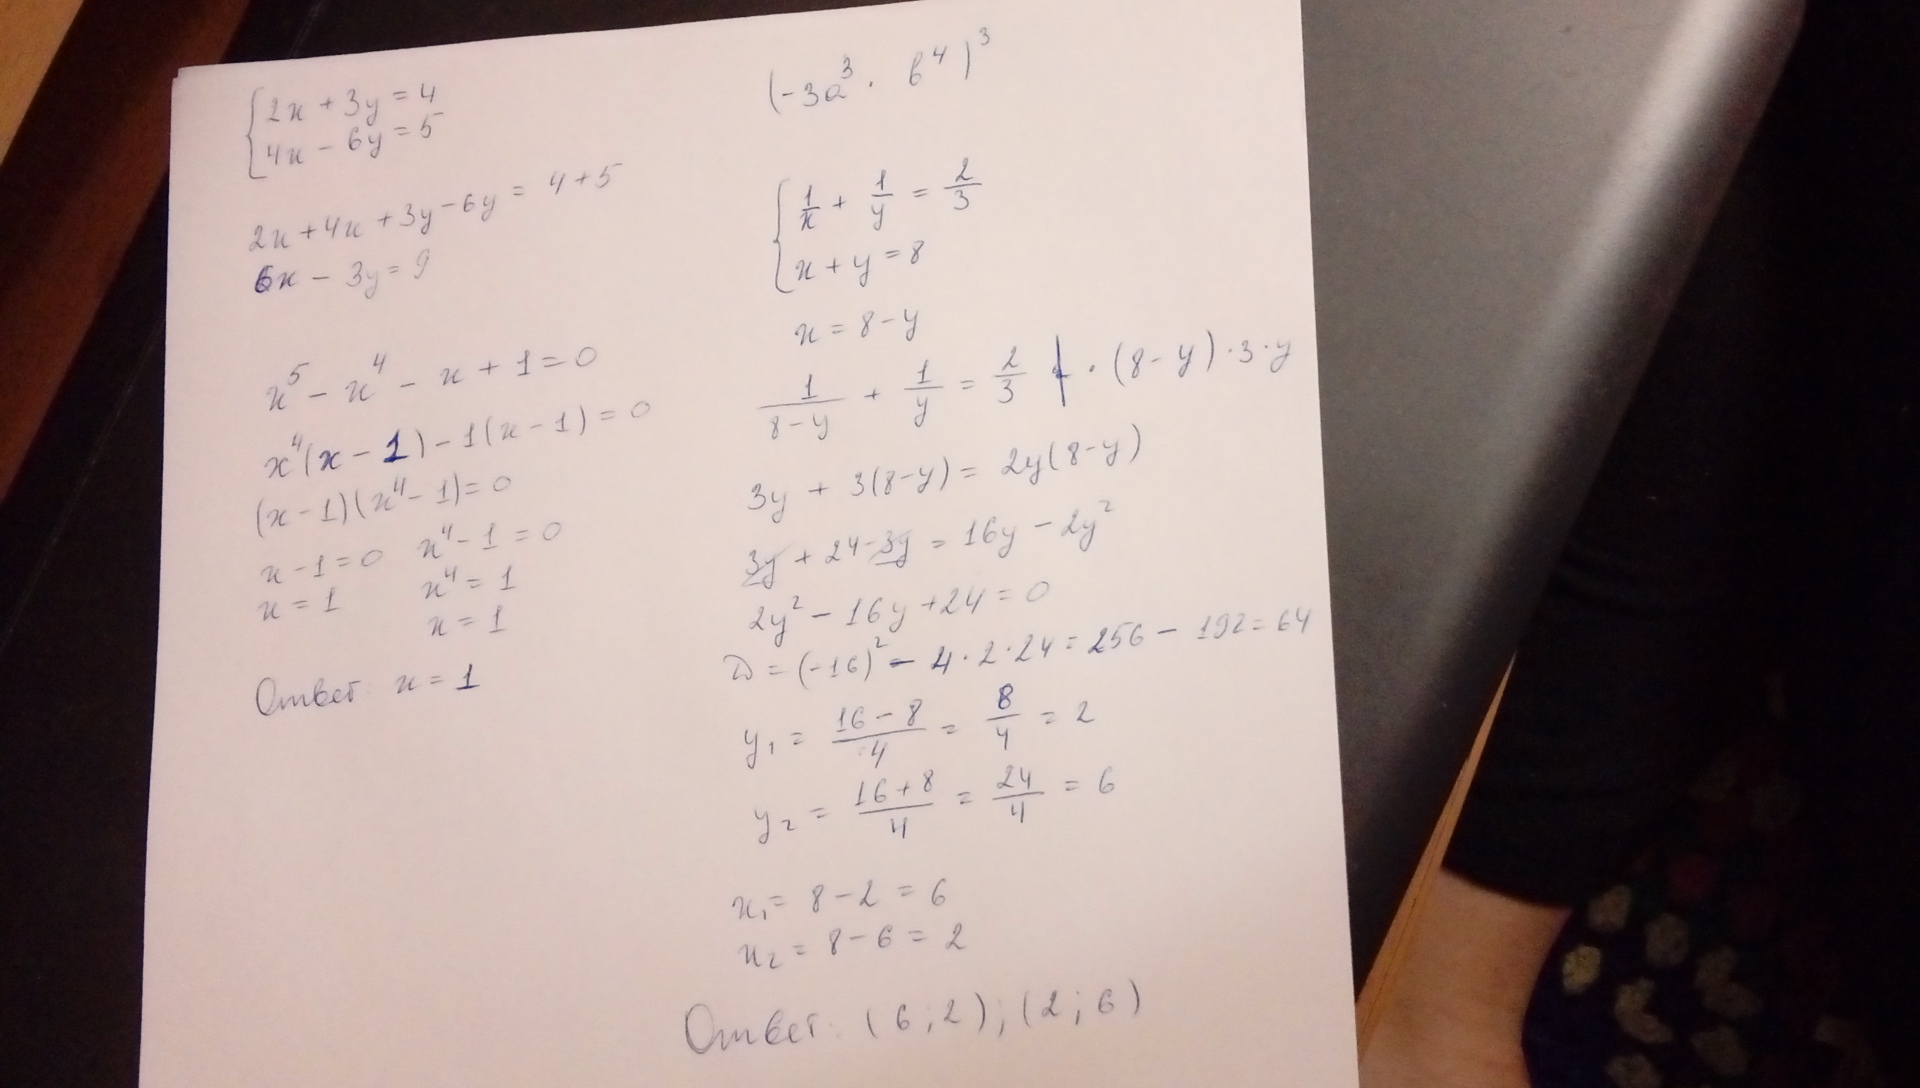 {2x + 3y = 4
4x - 6y = 5
2x + 4x + 3y - 6y = 4 + 5
6x - 3y = 9
x⁵ - x⁴ - x + 1 = 0
x⁴(x - 1) - 1(x - 1) = 0
(x - 1)(x⁴ - 1) = 0
x - 1 = 0 x⁴ - 1 = 0
x = 1 x⁴ = 1
x = 1
Ответ: x = 1
(-3a³ · b⁴)³
{1/x + 1/y = 2/3
x + y = 8
x = 8 - y
1/(8 - y) + 1/y = 2/3 | · (8 - y) · 3 · y
3y + 3(8 - y) = 2y(8 - y)
3y + 24 - 3y = 16y - 2y²
2y² - 16y + 24 = 0
D = (-16)² - 4 · 2 · 24 = 256 - 192 = 64
y₁ = (16 - 8)/4 = 8/4 = 2
y₂ = (16 + 8)/4 = 24/4 = 6
x₁ = 8 - 2 = 6
x₂ = 8 - 6 = 2
Ответ: (6; 2); (2; 6)